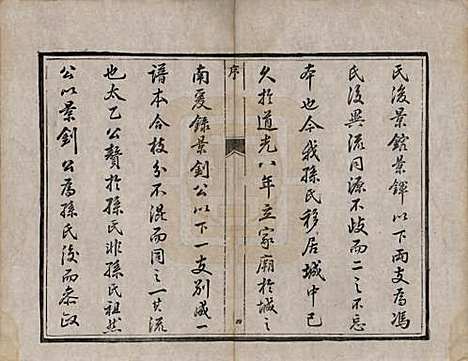 氏後景鎔景鐸以下兩支為馮
氏後異流同源不歧而二之不忘
本也今我孫氏移居城中已
久於道光八年立家廟於城之
序
南爰錄景釗公以下一支別成一
譜本合枝分不混而同之一其流
也太乙公贅於孫氏非孫氏祖然
公以景釗公為孫氏後而奈何